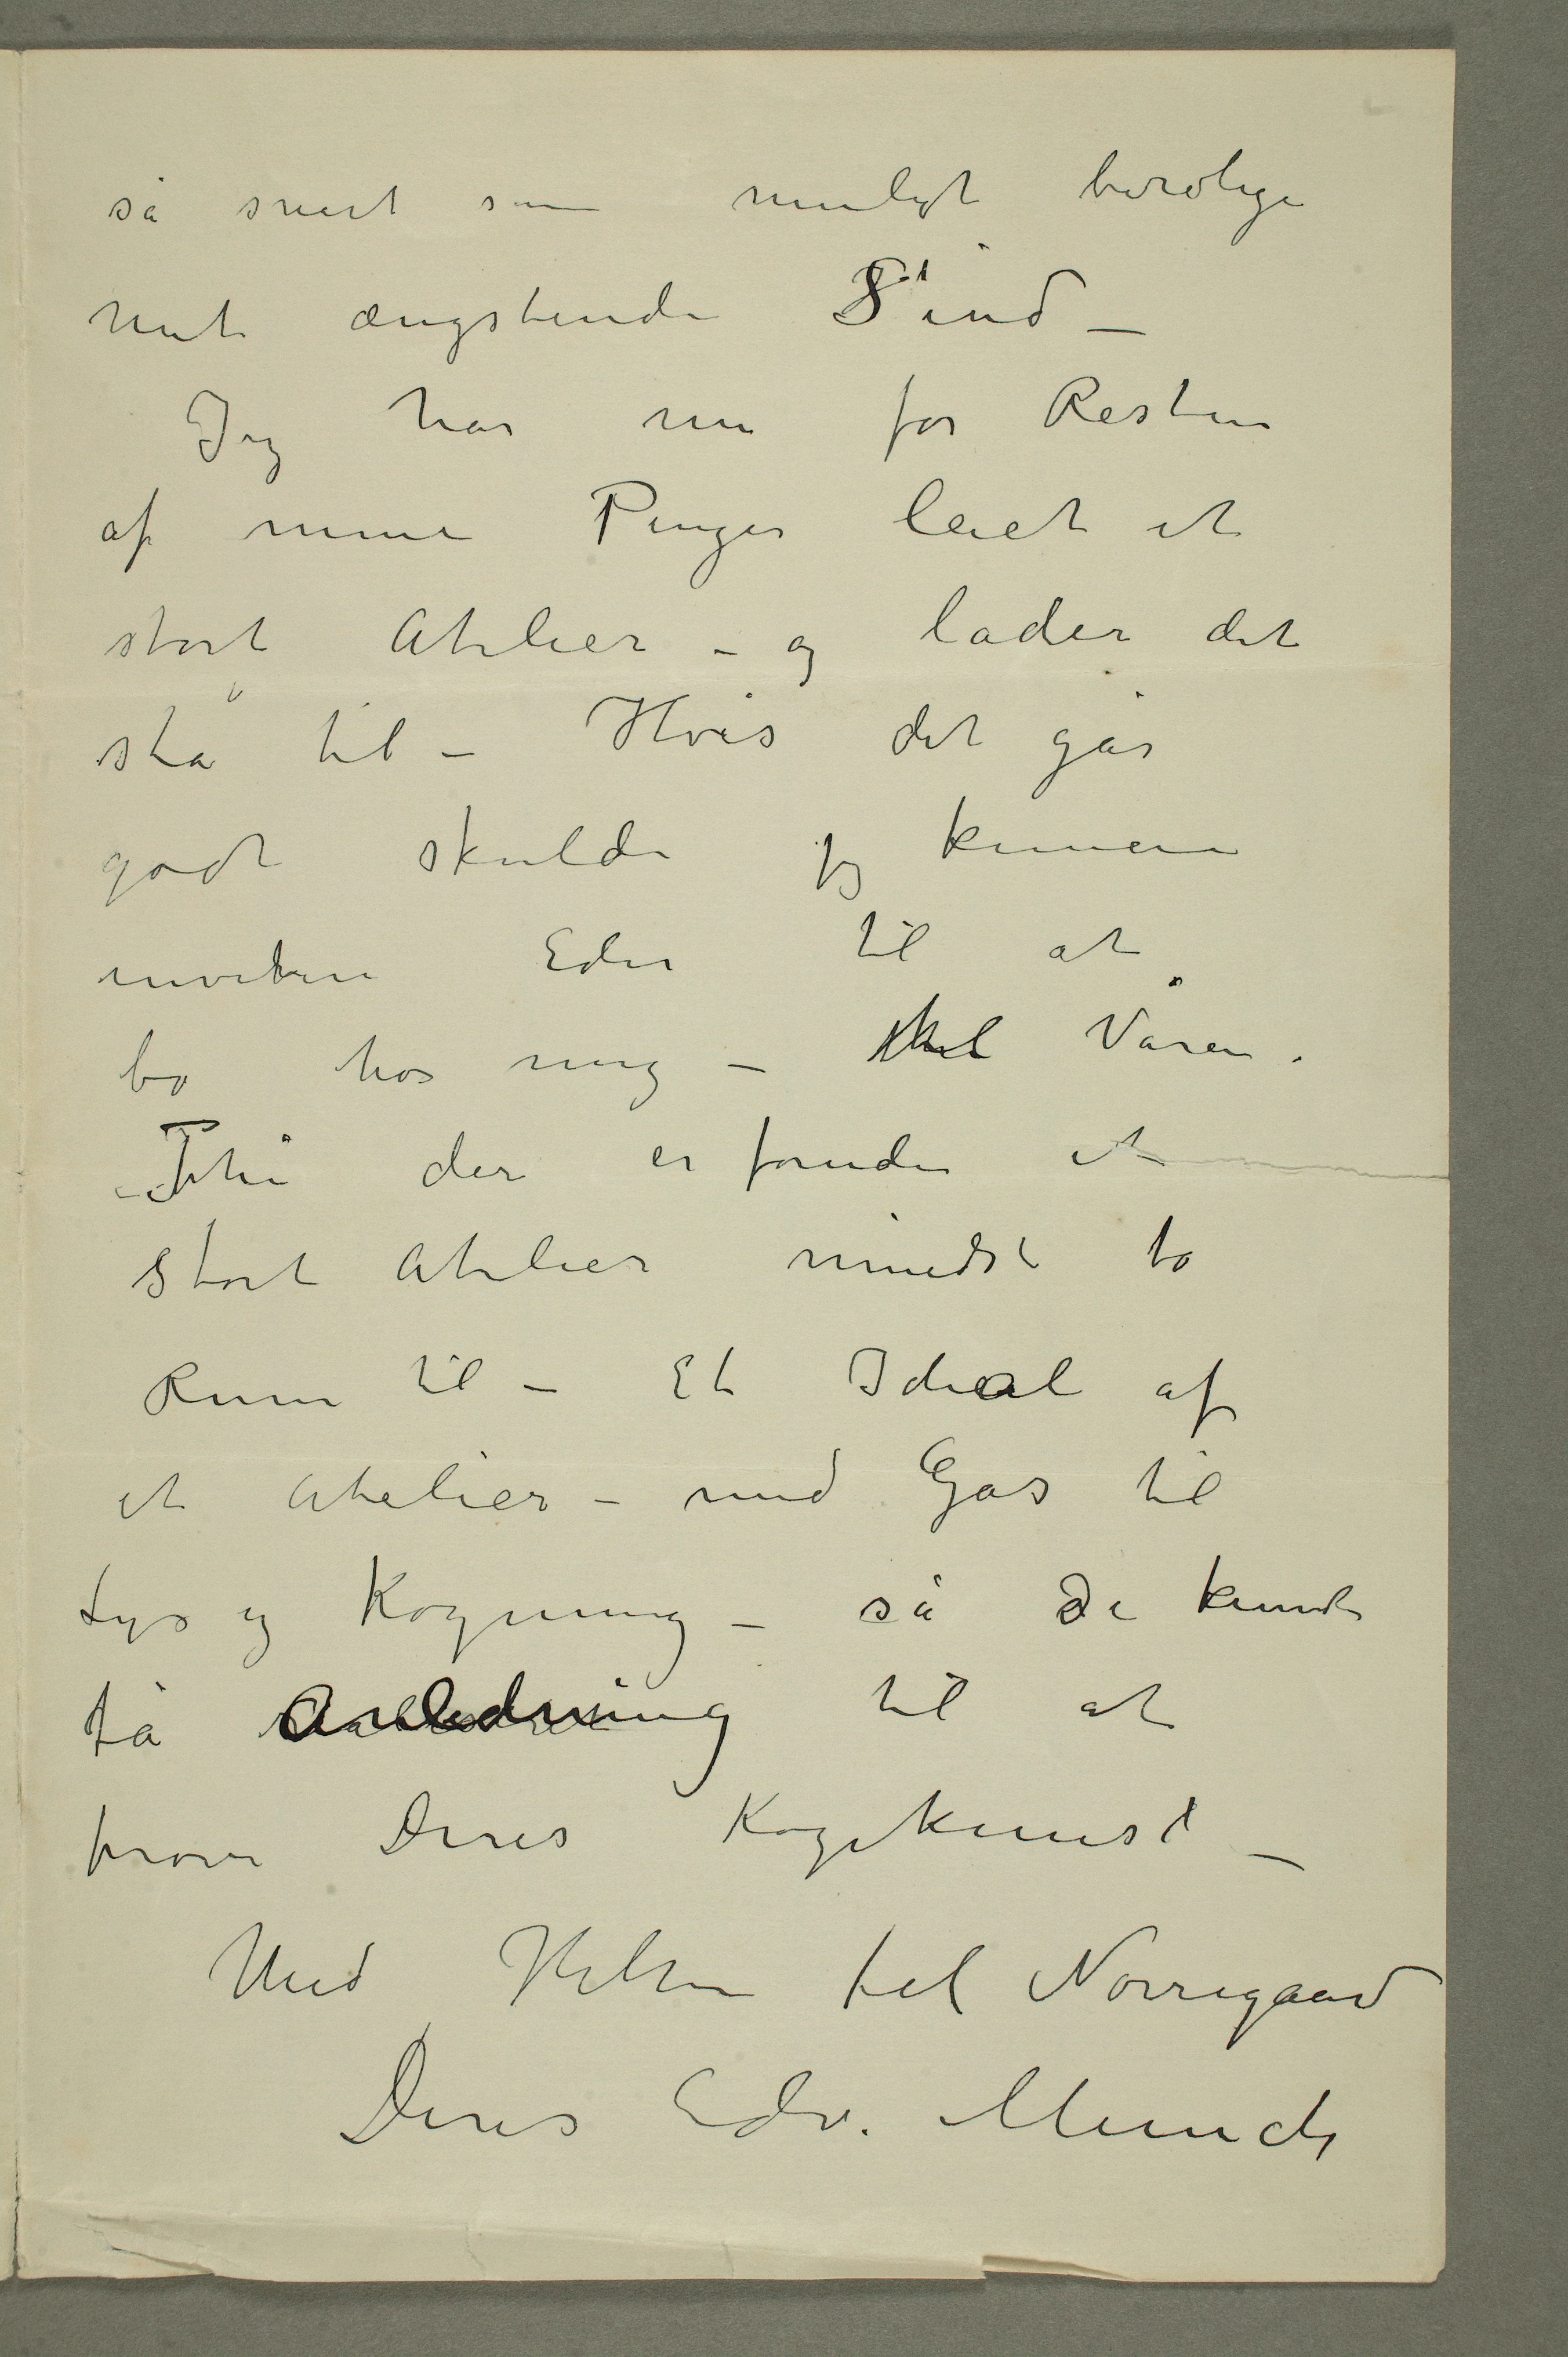 så snart som muligt berolige
mit ængstende Sind –
Jeg har nu for Resten
af mine Penger leiet et
stort Atelier – og lader det
stå til – Hvis det går
godt skulde jeg kunne
invitere Eder til at
bo hos mig – til Våren.
– Thi der er foruden et
stort Atelier mindst to
Rum til – Et Ideal af
et Atelier – med Gas til
Lys og Kogning – så De kunde
få Anledning til at
prøve Deres Kogekunst –
Med Hilsen til Nørregaard
Deres Edv. Munch